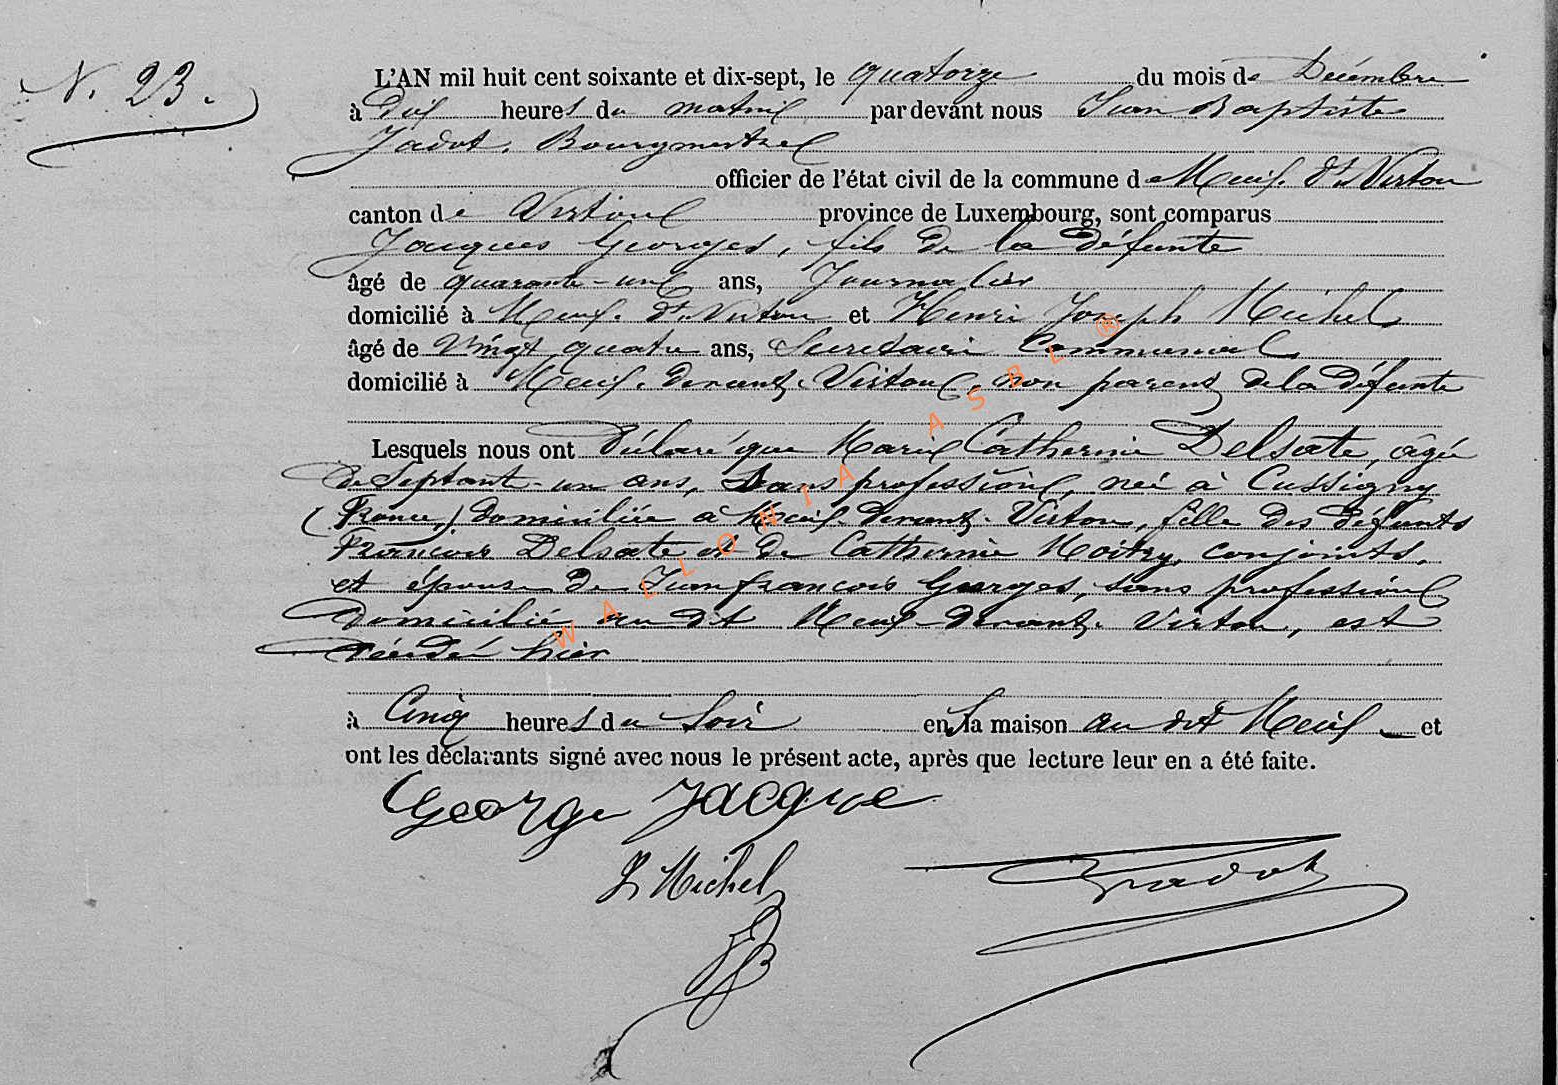 N. 23.
L'AN mil huit cent soixante et dix-sept, le quatorze du mois de Décembre
à Dix heures du matin par devant nous Jean Baptiste
Jadot, Bourgmestre
officier de l'état civil de la commune de Meix. dt. Virton
canton de Virton province de Luxembourg, sont comparus
Jacques Georges, fils de la défunte
âgé de quarante-un ans, Journalier
domicilié à Meix. dt. Virton et Henri Joseph Michel
âgé de Vingt quatre ans, Secrétaire Communal
domicilié à Meix. devant. Virton, non parent de la défunte
Lesquels nous ont déclaré que Marie Catherine Delsate, âgée
de Septant-un ans, Sans profession, née à Cussigny
(France,) domiciliée à Meix. devant. Virton, fille des défunts
François Delsate et de Catherine Moitry, conjoints,
et épouse de Jean françois Georges, sans profession
domicilié au dit Meix-devant. Virton, est
décédé hier
à Cinq heures du Soir en Sa maison au dit Meix et
ont les déclarants signé avec nous le présent acte, après que lecture leur en a été faite.
George Jacque
Michel
Jadot
WALLONIA ASBL ®